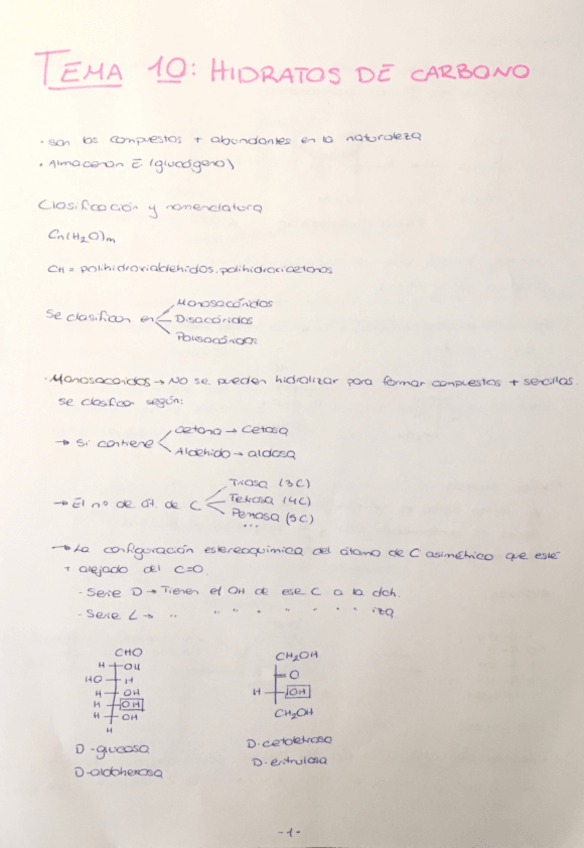 TEMA 10: HIDRATOS DE CARBONO
· son los compuestos + abundantes en la naturaleza
· Almacenan E (glucógeno)
Clasificación y nomenclatura
Cn(H2O)m
CH = polihidroxialdehidos, polihidroxicetonas
Se clasifican en
Monosacáridos
Disacáridos
Polisacáridos
· Monosacáridos → No se pueden hidrolizar para formar compuestos + sencillos.
Se clasifican según:
→ Si contiene
cetona → Cetosa
Aldehido → aldosa
→ El nº de át. de C
Triosa (3C)
Tetrosa (4C)
Pentosa (5C)
...
→ La configuración estereoquímica del átomo de C asimétrico que esté
+ alejado del C=O.
· Serie D → Tienen el OH de ese C a la dch.
· Serie L → " " " " " " " izq.
CHO
H OH
HO H
H OH
H OH
H OH
H
D-glucosa
D-aldohexosa
CH2OH
=O
H OH
CH2OH
D-cetotetrosa
D-eritrulosa
-1-